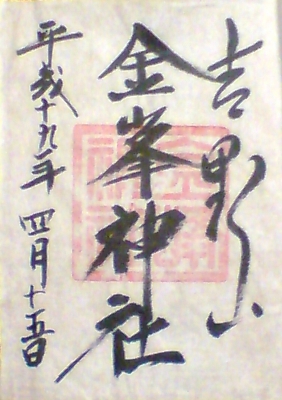 吉野山
金峯神社
平成十九年四月十五日